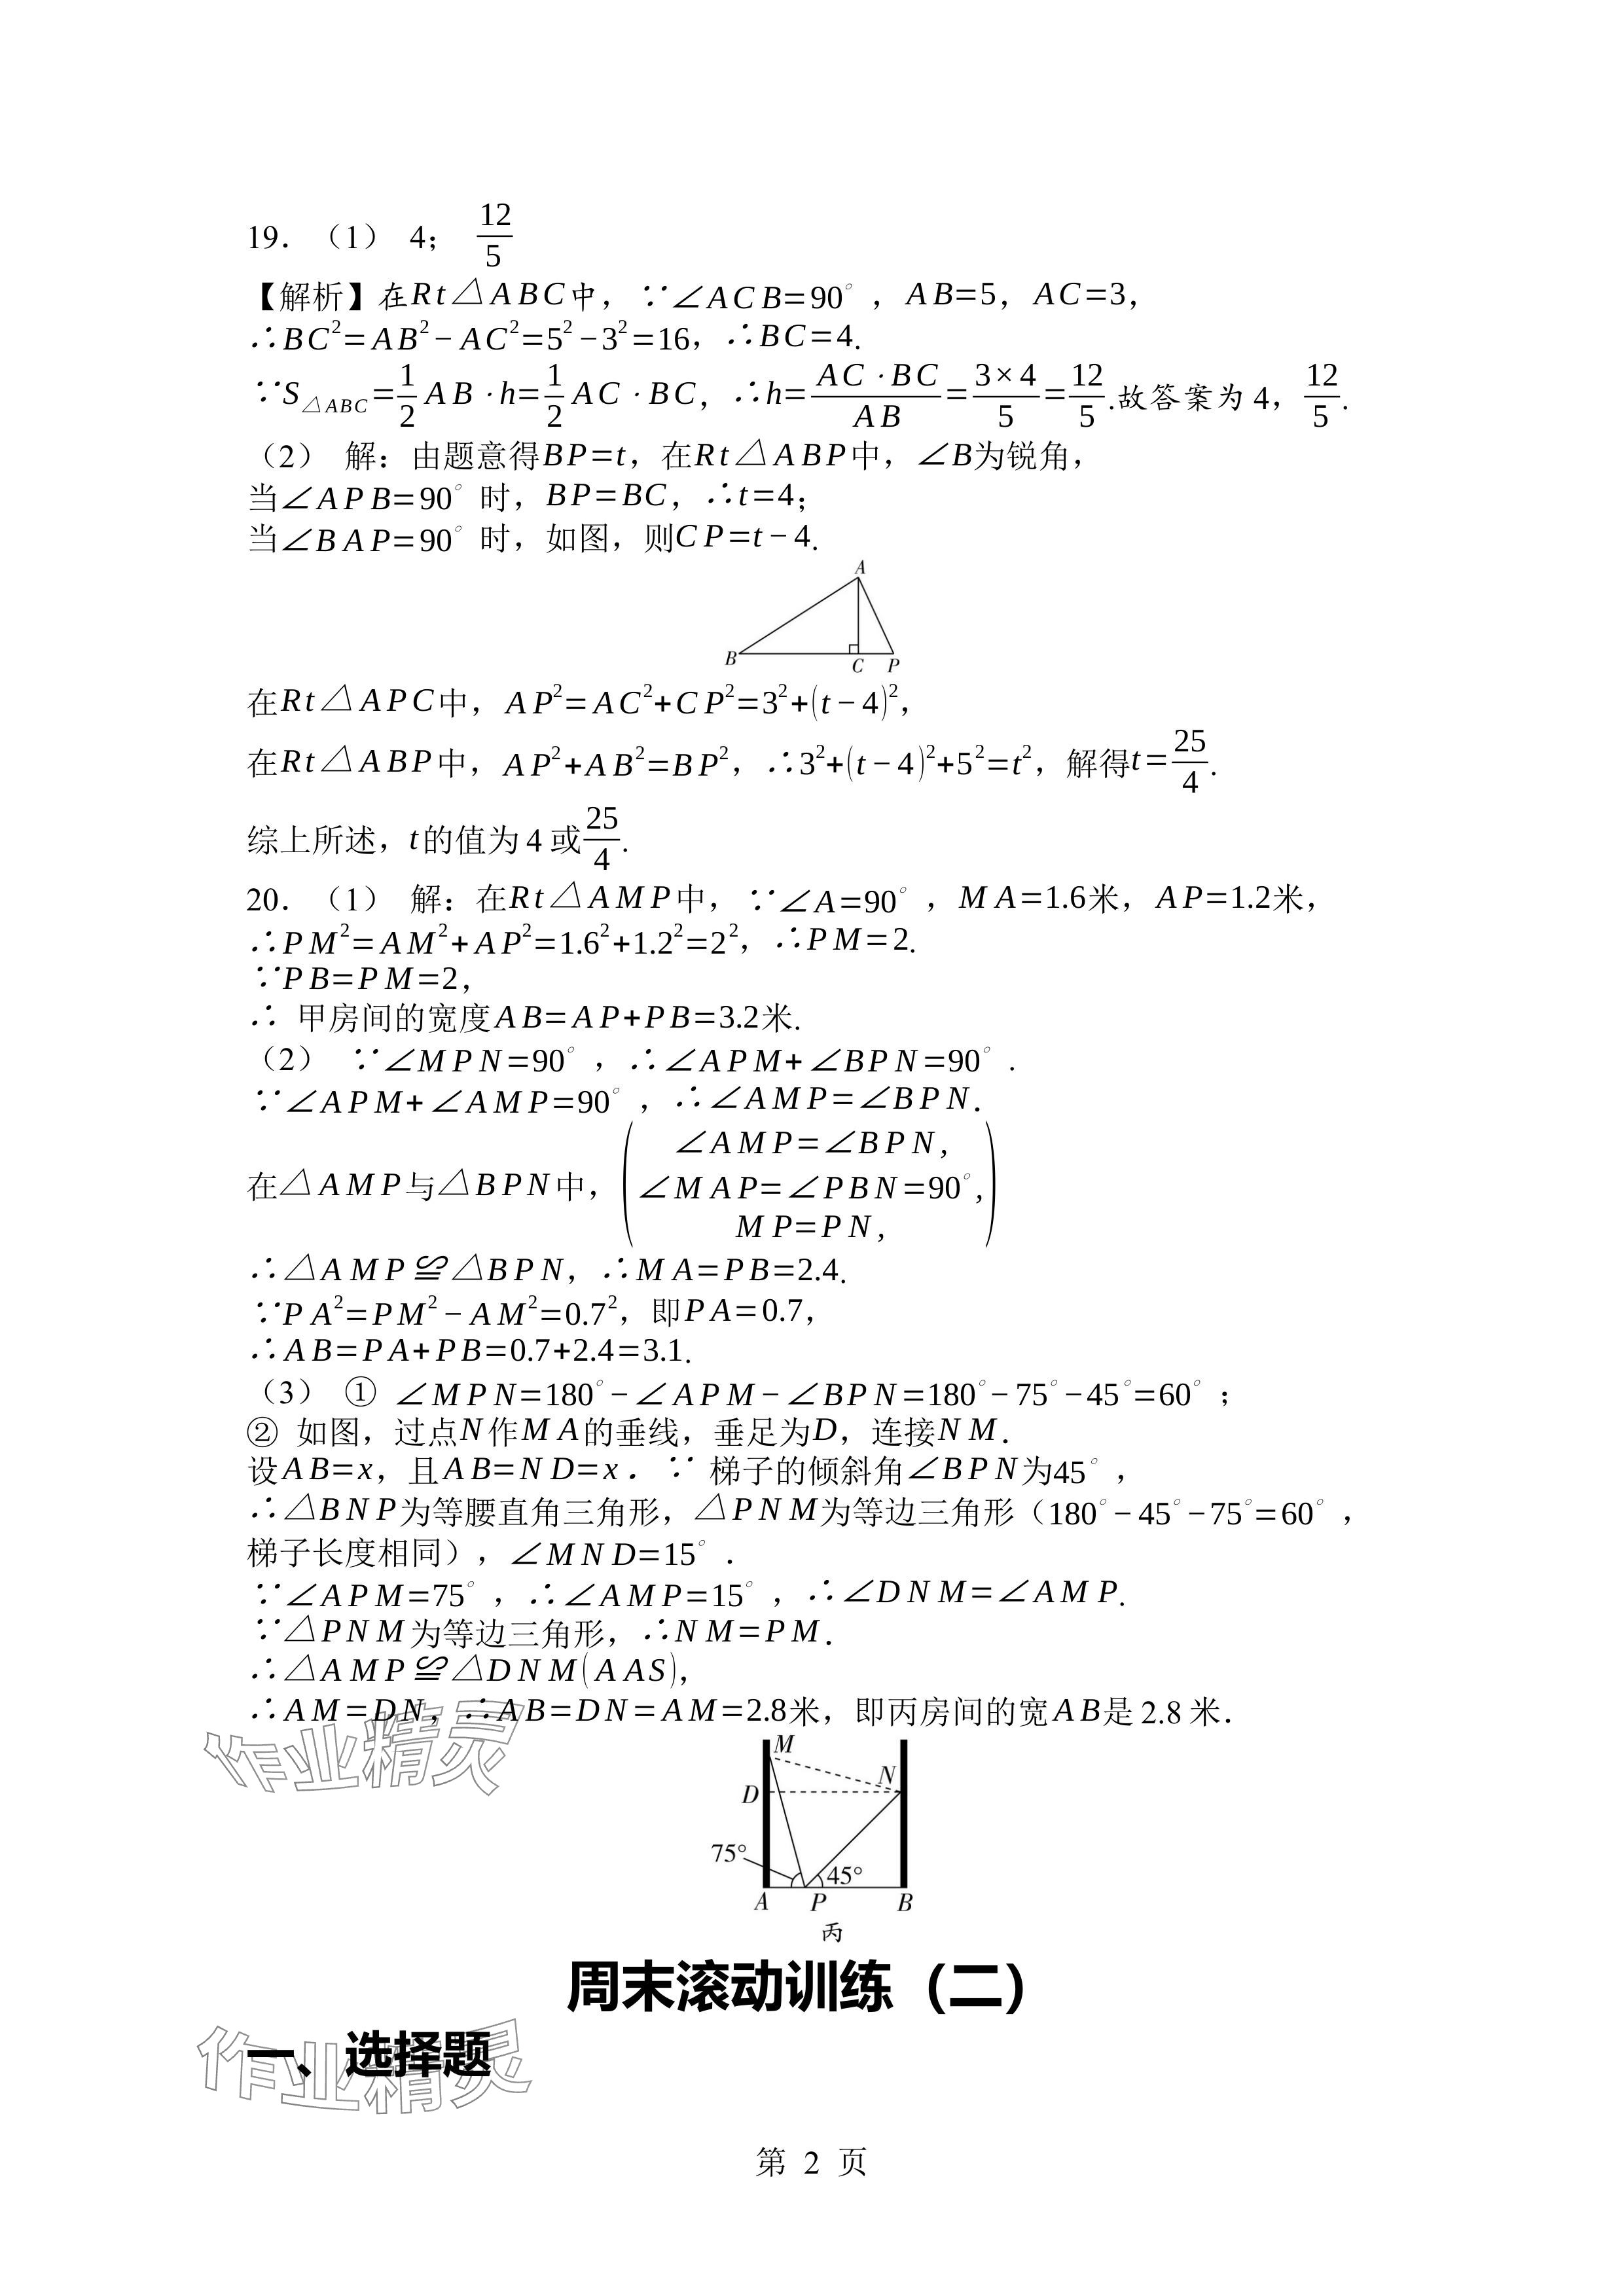 19．（1） 4； 12/5
【解析】在Rt△ABC中，∵∠ACB=90°，AB=5，AC=3，
∴BC²=AB²−AC²=5²−3²=16，∴BC=4.
∵S△ABC=1/2 AB·h=1/2 AC·BC，∴h=AC·BC/AB=3×4/5=12/5.故答案为 4，12/5.
（2） 解：由题意得BP=t，在Rt△ABP中，∠B为锐角，
当∠APB=90°时，BP=BC，∴t=4；
当∠BAP=90°时，如图，则CP=t−4.
A
B C P
在Rt△APC中，AP²=AC²+CP²=3²+(t−4)²，
在Rt△ABP中，AP²+AB²=BP²，∴3²+(t−4)²+5²=t²，解得t=25/4.
综上所述，t的值为 4 或25/4.
20．（1） 解：在Rt△AMP中，∵∠A=90°，MA=1.6米，AP=1.2米，
∴PM²=AM²+AP²=1.6²+1.2²=2²，∴PM=2.
∵PB=PM=2，
∴ 甲房间的宽度AB=AP+PB=3.2米.
（2） ∵∠MPN=90°，∴∠APM+∠BPN=90°.
∵∠APM+∠AMP=90°，∴∠AMP=∠BPN.
∠AMP=∠BPN,
在△AMP与△BPN中，(∠MAP=∠PBN=90°,)
MP=PN,
∴△AMP≌△BPN，∴MA=PB=2.4.
∵PA²=PM²−AM²=0.7²，即PA=0.7，
∴AB=PA+PB=0.7+2.4=3.1.
（3） ① ∠MPN=180°−∠APM−∠BPN=180°−75°−45°=60°；
② 如图，过点N作MA的垂线，垂足为D，连接NM.
设AB=x，且AB=ND=x．∵ 梯子的倾斜角∠BPN为45°，
∴△BNP为等腰直角三角形，△PNM为等边三角形（180°−45°−75°=60°，
梯子长度相同），∠MND=15°.
∵∠APM=75°，∴∠AMP=15°，∴∠DNM=∠AMP.
∵△PNM为等边三角形，∴NM=PM.
∴△AMP≌△DNM(AAS)，
∴AM=DN，∴AB=DN=AM=2.8米，即丙房间的宽AB是 2.8 米.
作业精灵
M
N
D
75°
45°
A P B
丙
周末滚动训练（二）
一、选择题
作业精灵
第 2 页